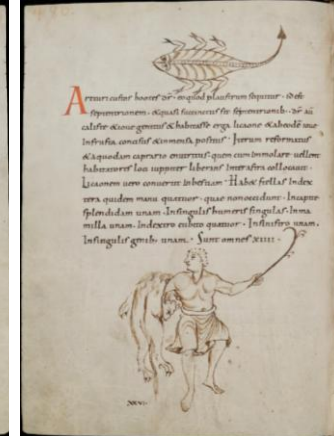 Arcturi custos bootes dr. eo quod plaustrum sequitur. id est
septentrionem. & quasi
& ioue genitus & habitasse erga licaone &
Infrusta concisus & inmensa positus. Iterum reformatus
& a quodam caprario enutritus. quem cum immolare uellent
habitatores loui uppiter liberans Inter astra collocauit.
Licaonem uero conuertit Inbestiam. Habet stellas Index
tera quidem manu quattuor. quae non occidunt. Incapite
splendidam unam. Insingulis humeris singulas. Inma
milla unam. Indextro cubito quattuor. Insinistro unam.
Insingulis genib; unam. Sunt omnes XIIII.